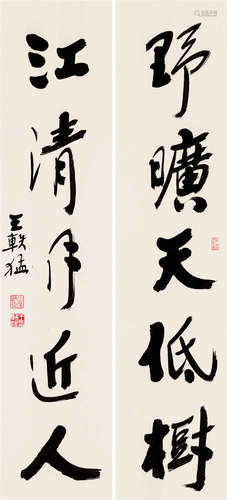 野曠天低樹
江清月近人
王軼猛